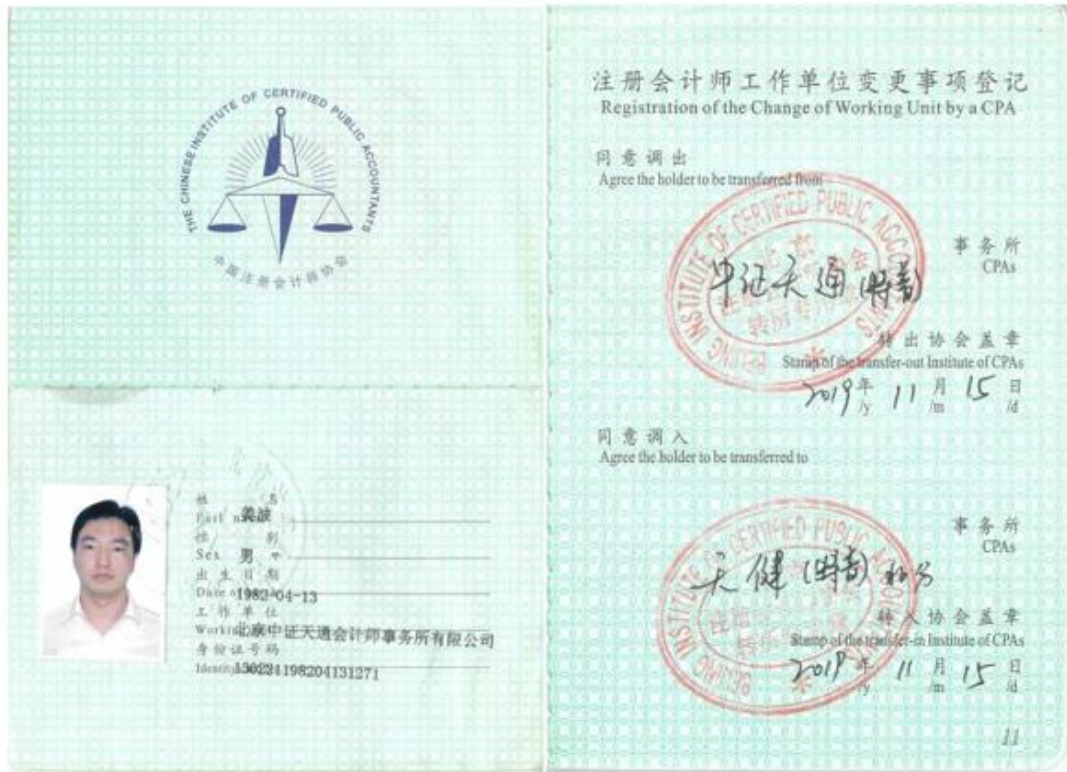 THE CHINESE INSTITUTE OF CERTIFIED PUBLIC ACCOUNTANTS
中国注册会计师协会
姓 名
Full name
姜波
性 别
Sex 男
出生日期
Date of birth 1982-04-13
工作单位
Working 北京中证天通会计师事务所有限公司
身份证号码
Identity 130221198204131271
注册会计师工作单位变更事项登记
Registration of the Change of Working Unit by a CPA
同意调出
Agree the holder to be transferred from
BEIJING INSTITUTE OF CERTIFIED PUBLIC ACCOUNTANTS
中证天通(特普)
事务所
CPAs
转出协会盖章
Stamp of the transfer-out Institute of CPAs
2019年 11月 15日
/y /m /d
同意调入
Agree the holder to be transferred to
BEIJING INSTITUTE OF CERTIFIED PUBLIC ACCOUNTANTS
天健(特普)
事务所
CPAs
转入协会盖章
Stamp of the transfer-in Institute of CPAs
2019年 11月 15日
/y /m /d
11